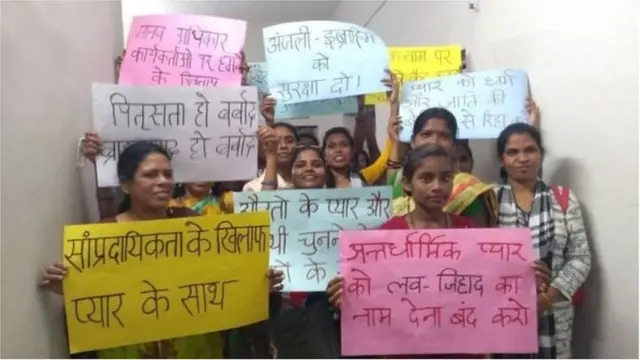 मानव अधिकार
कार्यकर्ताओं पर
के खिलाफ
अंजली - इब्राहिम
को
सुरक्षा दो!
नाम पर
प्यार को धर्म
और जाति की
से रिहा
पितृसत्ता हो बर्बाद
हो बर्बाद
औरतों के प्यार और
चुनने
के
सांप्रदायिकता के खिलाफ
प्यार के साथ
अन्तर्धार्मिक प्यार
को लव-जिहाद का
नाम देना बंद करो